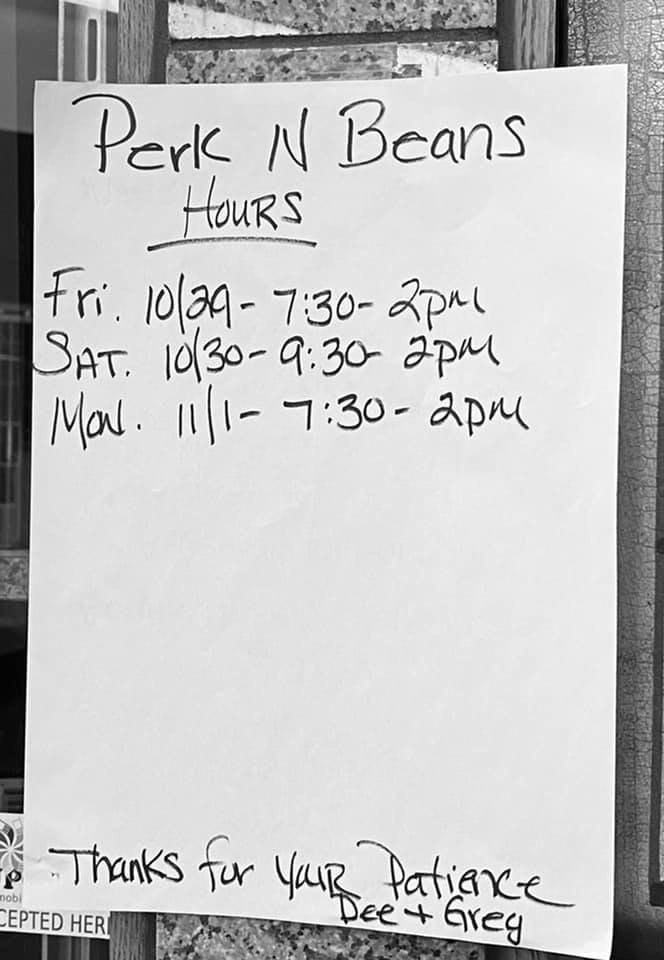 Perk N Beans
HOURS
Fri. 10/29- 7:30- 2pm
SAT. 10/30- 9:30- 2pm
Mon. 11/1- 7:30- 2pm
Thanks for your Patience
Dee + Greg
CEPTED HER